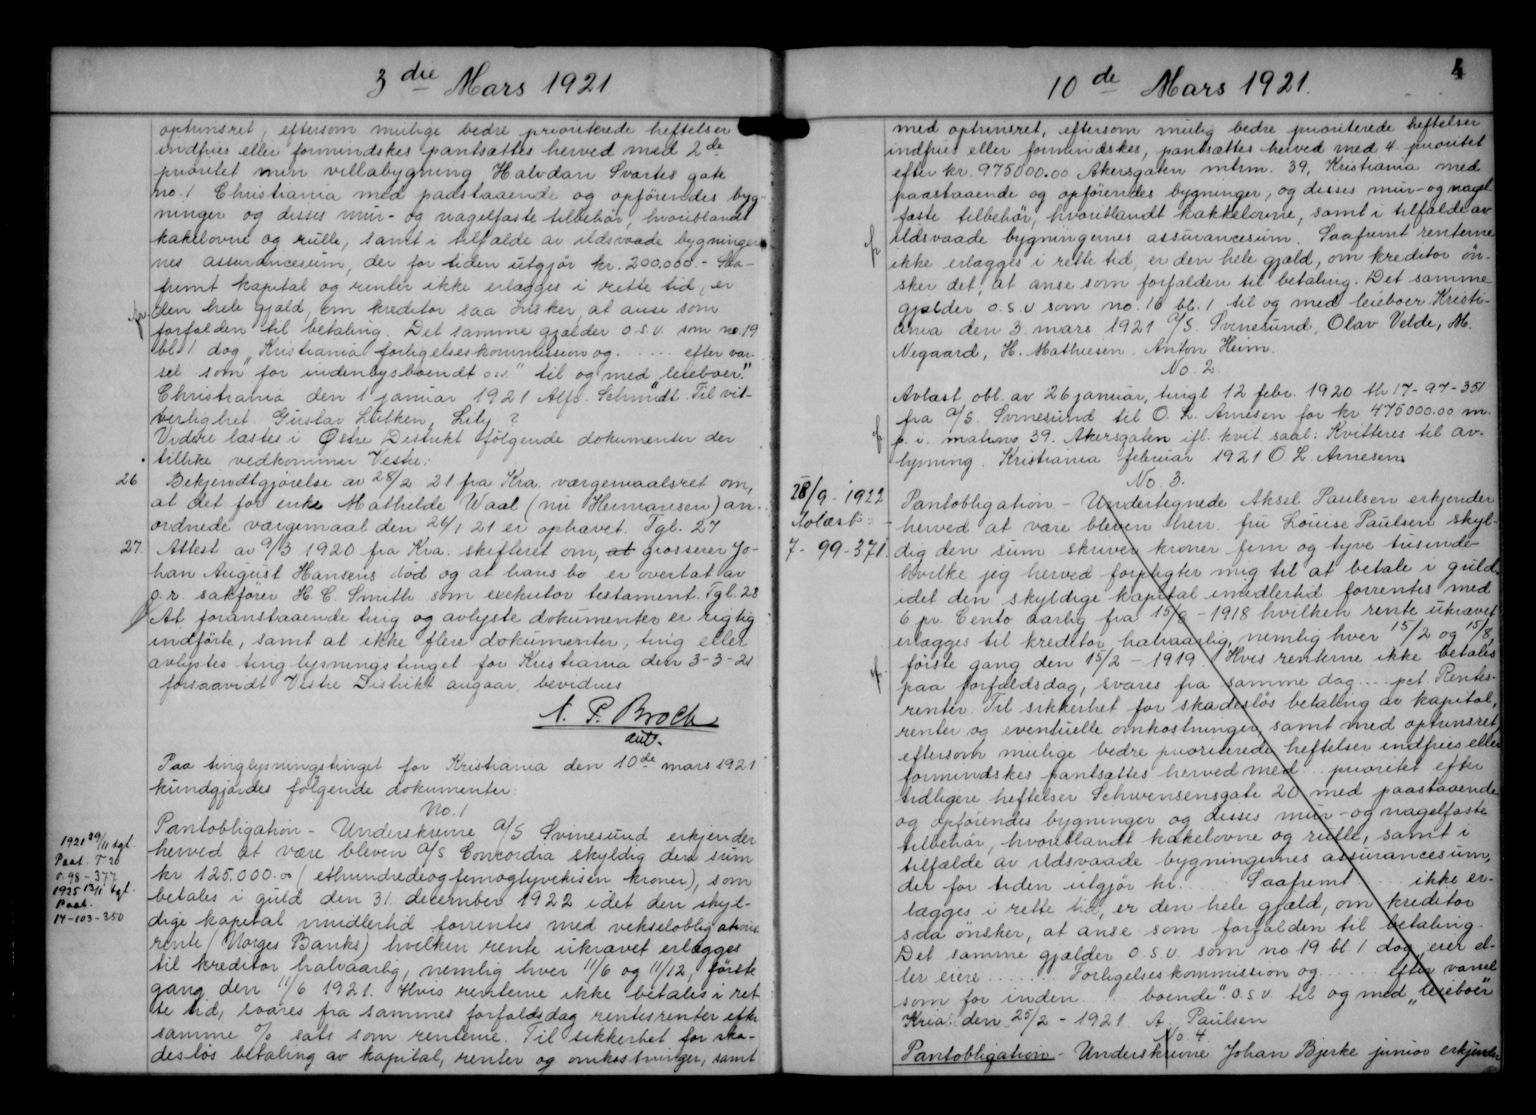 3 dre Mars 1921
optrinsret, eftersom mulige bedre prioriterede heftelser
indfries eller formindskes pantsættes herved med 2 de
prioritet min villabygning Halvdan Svartes gate
no. 1 Christiania med paastaaende og opførendes byg-
ninger og disses mur- og nagelfaste tilbehør, hvoriblandt
kakelovne og rulle, samt i tilfælde av ildsvaade bygninger-
nes assurancesum, der for tiden utgjør kr. 200.000.- Saa-
fremt kapital og renter ikke erlægges i rette tid, er
den hele gjæld, om kreditor saa ønsker, at anse som
forfalden til betaling. Det samme gjælder o.s.v. som no. 19
bl. 1 dog "Kristiania forligelseskommission og ..... efter var-
sel som for indenbysboendt o.s.v." til og med leieboer."
Christiania den 1 januar 1921 Alf. Schmidt. Til vit-
terlighet. Gustav Lütken, Lily ?
Videre læstes i Østre Distrikt følgende dokumenter der
tillike vedkommer Vestre:
26 Bekjendtgjørelse av 28/2 21 fra Kra. værgemaalsret om,
at det for enke Mathilde Waal (nu Hermansen) an-
ordnede værgemaal den 24/1 21 er ophævet. Tgl. 27
27. Attest av 9/3 1920 fra Kra. skifteret om, at grosserer Jo-
han August Hansens død og at hans bo er overtat av
o.r. sakfører H. C. Smith som executor testament. Tgl. 28
At foranstaaende ting og avlyste dokumenter er rigtig
indførte, samt at ikke flere dokumenter, ting eller
avlystes ting lysningstinget for Kristiania den 3-3-21
forsaavidt Vestre Distrikt angaar, bevidnes
N. P. Broch
aut.
Paa tinglysningstinget for Kristiania den 10 de mars 1921
kundgjordes følgende dokumenter:
No. 1
1921 29/11 tgl.
Paat. T 20
0-98-377
1935 13/11 tgl.
Paat.
14-103-350
Pantobligation - Underskrevne A/S Svinesund erkjender
herved at være bleven A/S Concordia skyldig den sum
kr 125.000.00 (ethundredeogfemogtyvetusen kroner), som
betales i guld den 31. december 1922 idet den skyl-
dige kapital imidlertid forrentes med vekselobligations
rente (Norges Banks) hvilken rente ukrævet erlægges
til kreditor halvaarlig, nemlig hver 11/6 og 11/12, første
gang den 11/6 1921. Hvis renterne ikke betales i ret
te tid, svares fra sammes forfaldsdag rentesrenter efter
samme % sats som renterne. Til sikkerhet for ska-
desløs betaling av kapital, renter og omkostninger, samt
10 de Mars 1921.
4
med optrinsret, eftersom mulig bedre prioriterede heftelser
indfries eller formindskes, pantsættes herved med 4 prioritet
efter kr. 975000.00 Akersgaten mtrn. 39, Kristiania med
paastaaende og opførendes bygninger, og disses mur- og nagel-
faste tilbehør, hvoriblandt kakkelovne, samt i tilfælde av
ildsvaade bygningernes assurancesum. Saafremt renterne
ikke erlægges i rette tid, er den hele gjæld, om kreditor øn-
sker det, at anse som forfalden til betaling. Det samme
gjælder o.s.v som no. 16 bl. 1 til og med leieboer. Kristi-
ania den 3 mars 1921 A/S. Svinesund, Olav Velde, M.
Negaard, H. Mathiesen. Anton Heim.
No. 2
Avlæst obl. av 26 januar, tingl 12 febr. 1920 th 17-97-351
fra A/S. Svinesund til O. L. Arnesen for kr 475000.00 m.
p. i. matrno 39. Akersgaten ifl. kvit. saal: Kvitteres til av-
lysning. Kristiania februar 1921 O. L. Arnesen
No. 3.
28/9-1922
Avlæst:
7-99-371.
Pantobligation. - Undertegnede Aksel Paulsen erkjender
herved at være bleven herr. fru Louise Paulsen skyl-
dig den sum skriver kroner fem og tyve tusinde
hvilke jeg herved forpligter mig til at betale i guld
idet den skyldige kapital imidlertid forrentes med
6 pr. Cento aarlig fra 15/8 - 1918 hvilken rente ukrævet
erlægges til kreditor halvaarlig, nemlig hver 15/2 og 15/8,
første gang den 15/2 - 1919. Hvis renterne ikke betales
paa forfaldsdag, svares fra samme dag .... pct. Rentes-
renter. Til sikkerhet for skadesløs betaling av kapital,
renter og eventuelle omkostninger, samt med optrinsret,
eftersom mulige bedre prioriterede heftelser indfries eller
formindskes pantsættes herved med ... prioritet efter
tidligere heftelser Schwensensgate 20 med paastaaende
og opførendes bygninger og disses mur- og nagelfaste
tilbehør, hvoriblandt kakelovne og rulle, samt i
tilfælde av ildsvaade bygningernes assurancesum,
der for tiden utgjør kr. .... Saafremt .... ikke er-
lægges i rette tid, er den hele gjæld, om kreditor
saa ønsker, at anse som forfalden til betaling.
Det samme gjælder o.s.v. som no 19 bl. 1 dog eier el-
ler eiere ..... Forligelseskommission og ..... efter varsel
som for inden ... boende" o.s.v. til og med "leieboer"
Kria. den 25/2 - 1921 A. Paulsen
No. 4
Pantobligation - Underskrevne Johan Bjerke junior erkjender